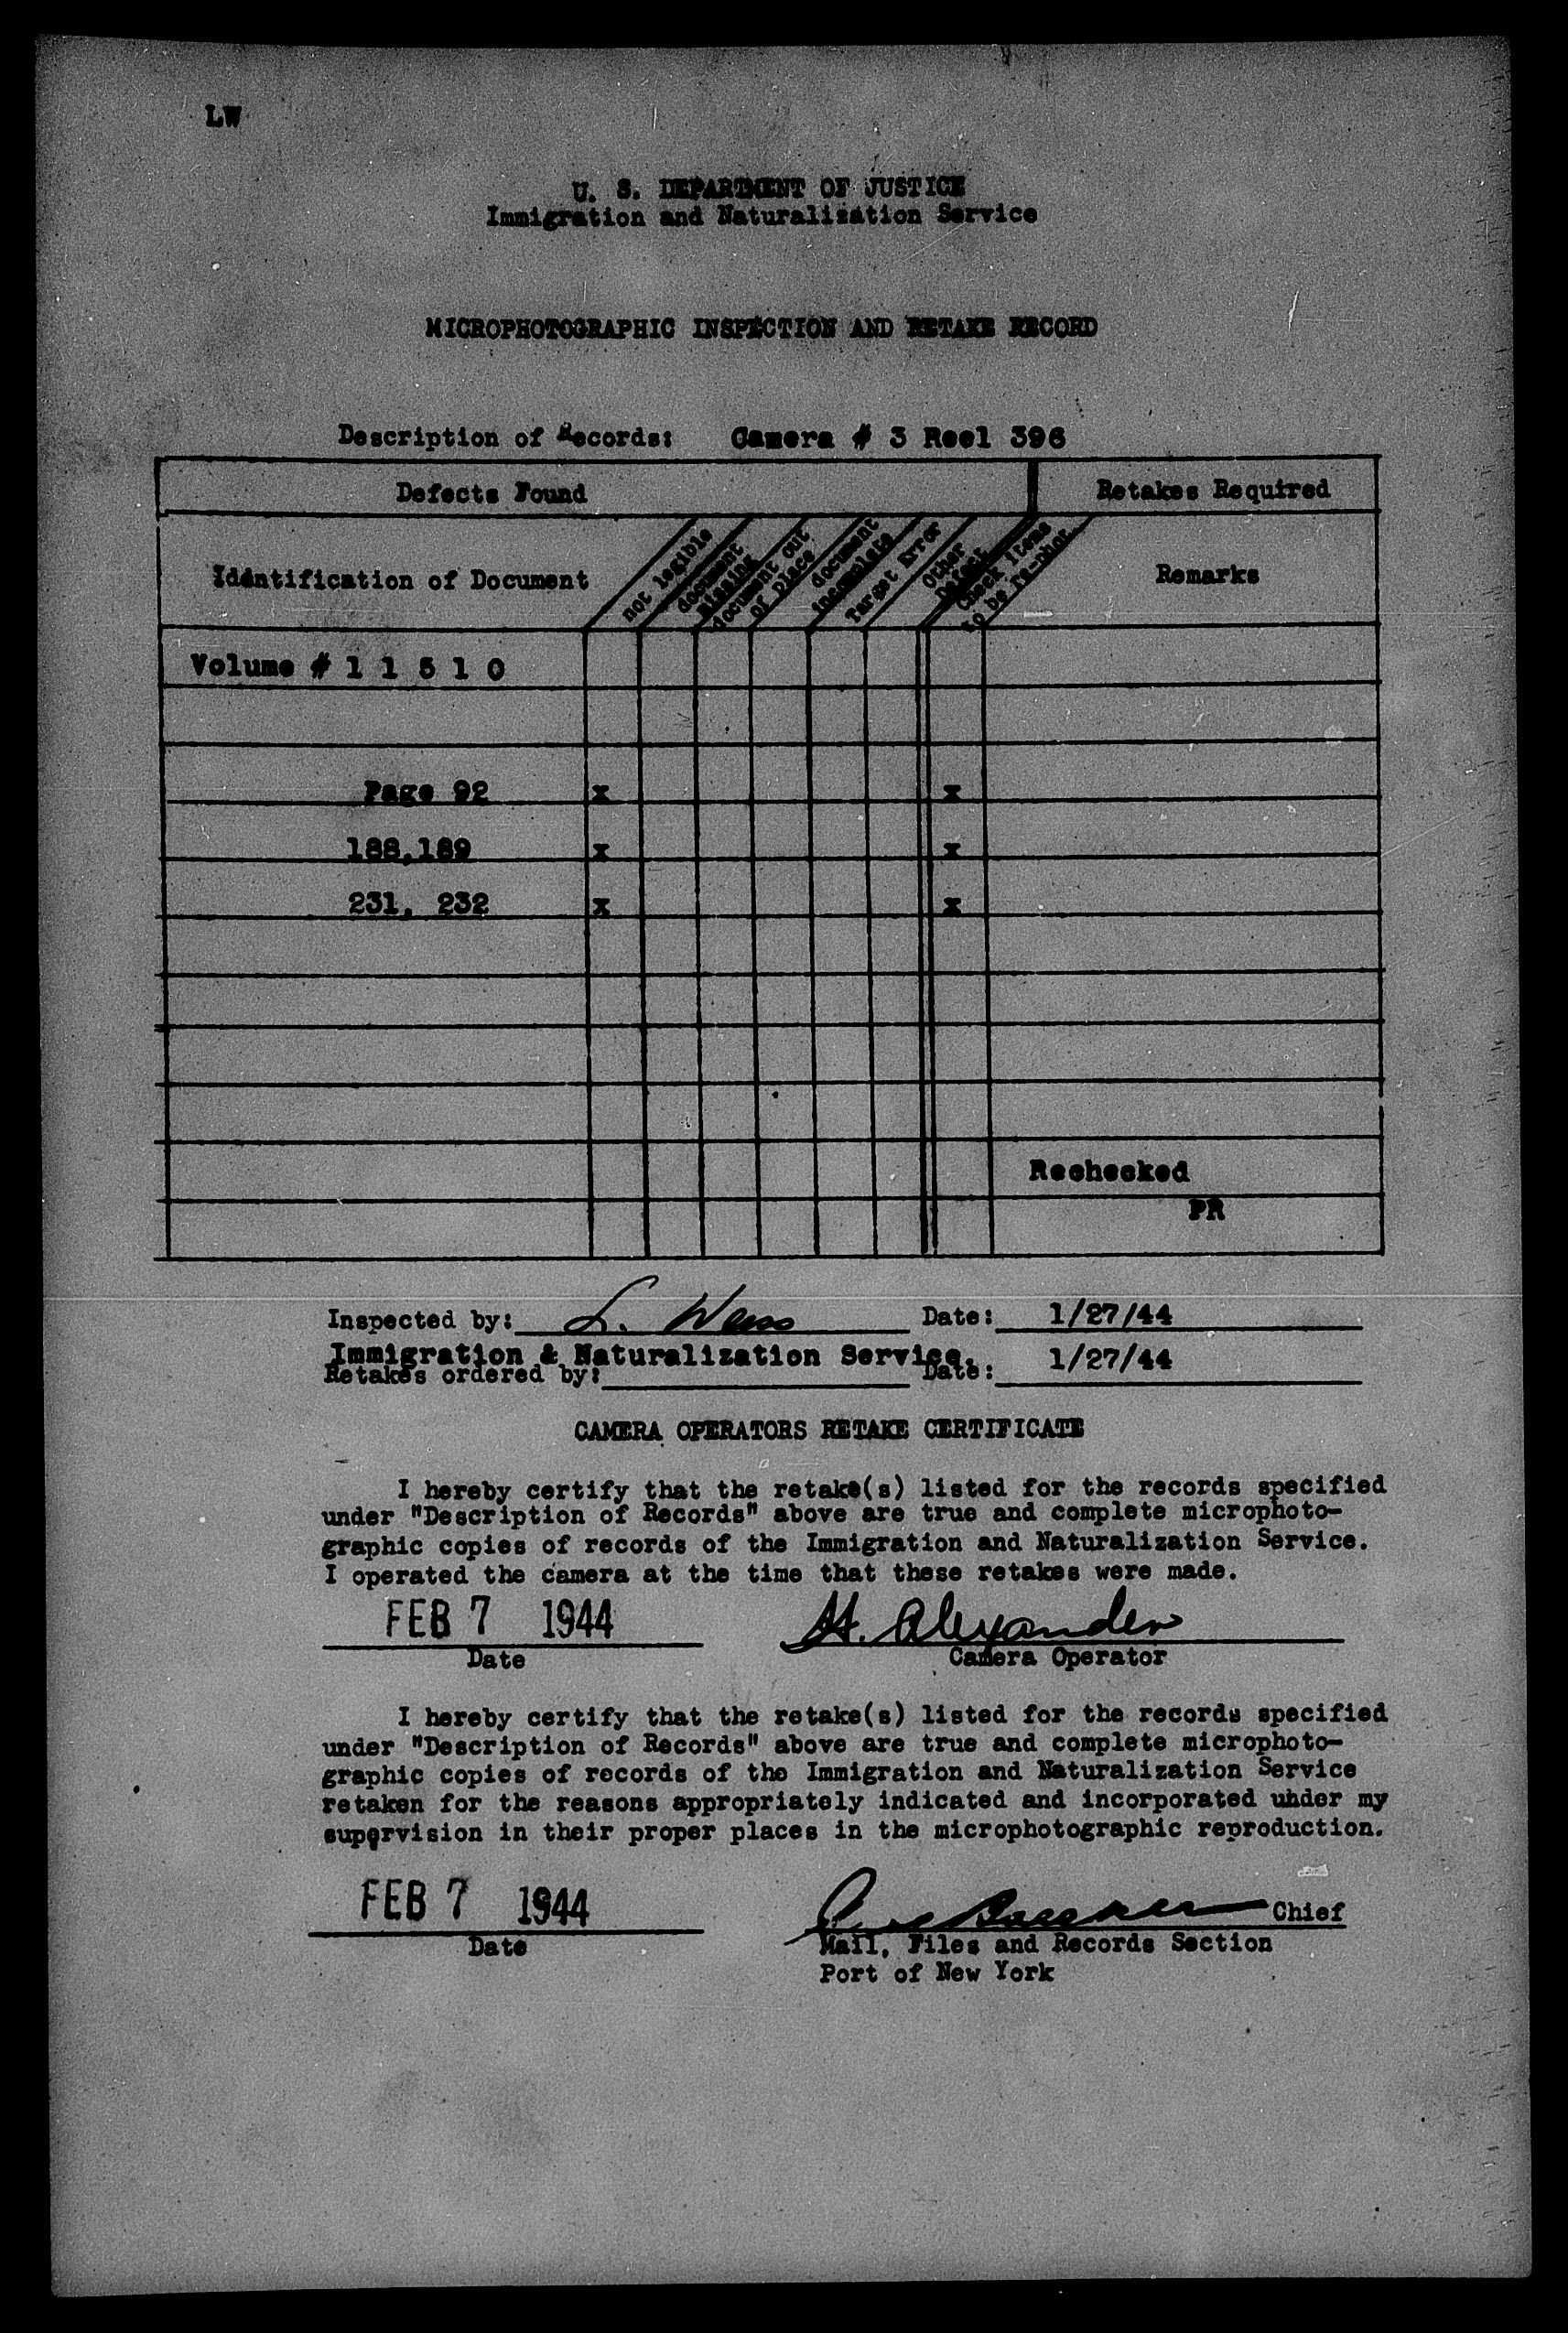 LW
U. S. DEPARTMENT OF JUSTICE
Immigration and Naturalization Service
MICROPHOTOGRAPHIC INSPECTION AND RETAKE RECORD
Description of Records: Camera # 3 Reel 396
Defects Found Retakes Required
Identification of Document
not legible
document missing
document out of place
document incomplete
Target Error
Other Defect
Check items to be re-phot.
Remarks
Volume # 1 1 5 1 0
Page 92 x x
188,189 x x
231, 232 x x
Rechecked
PR
Inspected by: L. Weiss Date: 1/27/44
Immigration & Naturalization Service. 1/27/44
Retakes ordered by: Date:
CAMERA OPERATORS RETAKE CERTIFICATE
I hereby certify that the retake(s) listed for the records specified
under "Description of Records" above are true and complete microphoto-
graphic copies of records of the Immigration and Naturalization Service.
I operated the camera at the time that these retakes were made.
FEB 7 1944 H. Alexander
Date Camera Operator
I hereby certify that the retake(s) listed for the records specified
under "Description of Records" above are true and complete microphoto-
graphic copies of records of the Immigration and Naturalization Service
retaken for the reasons appropriately indicated and incorporated uhder my
supervision in their proper places in the microphotographic reproduction.
FEB 7 1944 Chief
Date Mail, Files and Records Section
Port of New York